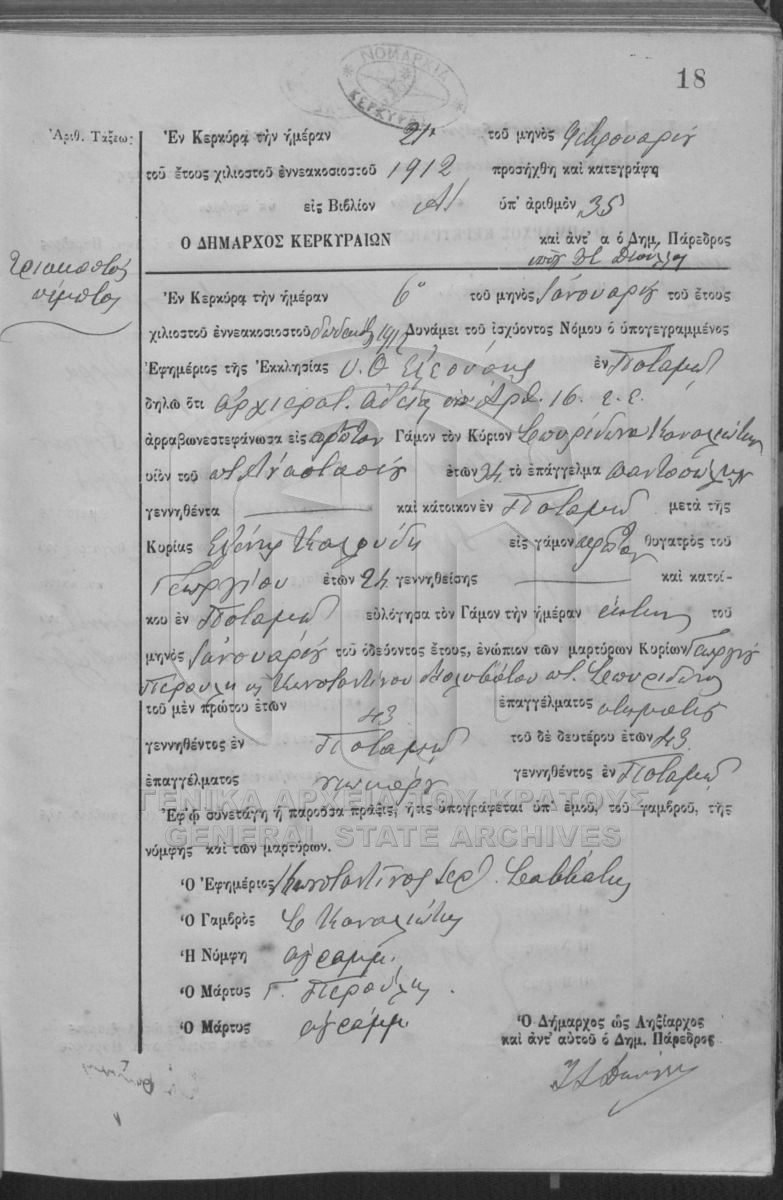 ΝΟΜΑΡΧΙΑ ΚΕΡΚΥΡΑΣ
18
Ἀριθ. Τάξεως
Ἐν Κερκύρᾳ τὴν ἡμέραν 21 τοῦ μηνὸς Φεβρουαρίου
τοῦ ἔτους χιλιοστοῦ ἐννεακοσιοστοῦ 1912 προσήχθη καὶ κατεγράφη
εἰς Βιβλίον ὑπ' ἀριθμὸν 35
Ο ΔΗΜΑΡΧΟΣ ΚΕΡΚΥΡΑΙΩΝ καὶ ἀντ' α ὁ Δημ. Πάρεδρος
τριακοστός
πέμπτος
Ἐν Κερκύρᾳ τὴν ἡμέραν 6 τοῦ μηνὸς Ἰανουαρίου τοῦ ἔτους
χιλιοστοῦ ἐννεακοσιοστοῦ δωδεκάτου 1912 Δυνάμει τοῦ ἰσχύοντος Νόμου ὁ ὑπογεγραμμένος
Ἐφημέριος τῆς Ἐκκλησίας Υ. Θ. ἐν Ποταμῷ
δηλῶ ὅτι ἀρχιερατ. ἀδείᾳ ὑπ' ἀρθ. 16 ἐ. ἔ.
ἀρραβωνεστεφάνωσα εἰς πρῶτον Γάμον τὸν Κύριον Σπυρίδωνα Καναλιώτην
υἱὸν τοῦ Ἀναστασίου ἐτῶν 24 τὸ ἐπάγγελμα παντοπώλην
γεννηθέντα καὶ κάτοικον ἐν Ποταμῷ μετὰ τῆς
Κυρίας Ἑλένης εἰς γάμον πρῶτον θυγατρὸς τοῦ
Γεωργίου ἐτῶν 24 γεννηθείσης καὶ κατοί-
κου ἐν Ποταμῷ εὐλόγησα τὸν Γάμον τὴν ἡμέραν ἕκτην τοῦ
μηνὸς Ἰανουαρίου τοῦ ὁδεύοντος ἔτους, ἐνώπιον τῶν μαρτύρων Κυρίων Γεωργίου
Περούλη κ Κωνσταντίνου Σπυρίδωνος
τοῦ μὲν πρώτου ἐτῶν 43 ἐπαγγέλματος
γεννηθέντος ἐν Ποταμῷ τοῦ δὲ δευτέρου ἐτῶν 43
ἐπαγγέλματος γεννηθέντος ἐν Ποταμῷ
ΓΕΝΙΚΑ ΑΡΧΕΙΑ ΤΟΥ ΚΡΑΤΟΥΣ
Ἐφ' ᾧ συνετάγη ἡ παροῦσα πρᾶξις, ἥτις ὑπογράφεται ὑπ' ἐμοῦ, τοῦ γαμβροῦ, τῆς
GENERAL STATE ARCHIVES
νύμφης καὶ τῶν μαρτύρων.
Ὁ Ἐφημέριος Κωνσταντῖνος ἱερ.
Ὁ Γαμβρὸς Σ Καναλιώτης
Ἡ Νύμφη ἀγραμμ.
Ὁ Μάρτυς Γ. Περούλης
Ὁ Μάρτυς ἀγράμμ.
Ὁ Δήμαρχος ὡς Ληξίαρχος
καὶ ἀντ' αὐτοῦ ὁ Δημ. Πάρεδρος